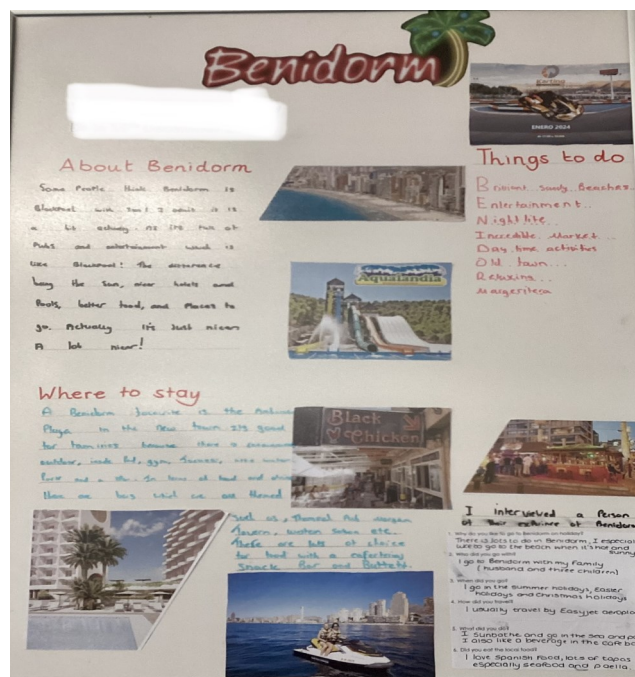 Benidorm
ENERO 2024
About Benidorm
Some People think Benidorm is
Blackpool with sun! I admit it is
a bit as its full of
Pubs and entertainment which is
like Blackpool! The difference
being the Sun, nicer hotels and
Pools, better food, and Places to
go. Actually It's Just nicer
A lot nicer!
Things to do
Brilliant Sandy Beaches
Entertainment..
Nightlife..
Incredible Market...
Day time activities
Old town...
Relaxing...
Margeritera
Aqualandia
Where to stay
A Benidorm favourite is the
Playa in the New town its good
for families because there a
outdoor, inside Pool, gym, Jacuzzi,
and a In terms of food and
there are bars which are are themed
Such as, Pub Morgan
Tavern, etc.
There are lots of choice
for food with a cafeteria,
Snack Bar and Buffett.
Black
Chicken
I interviewed a Person
of their at Benidorm
1. Why do you like to go to Benidorm on holiday?
There is lots to do in Benidorm, I especial
like to go to the beach when it's hot and
sunny
2. Who did you go with?
I go to Benidorm with my family
(husband and three children)
3. When did you go?
I go in the summer holidays, Easter
holidays and Christmas holidays
4. How did you travel?
I usually travel by Easyjet aeropla
5. What did you do?
I sunbathe and go in the sea and po
I also like a beverage in the café ba
6. Did you eat the local food?
I love Spanish food, lots of tapas
especially seafood and paella.